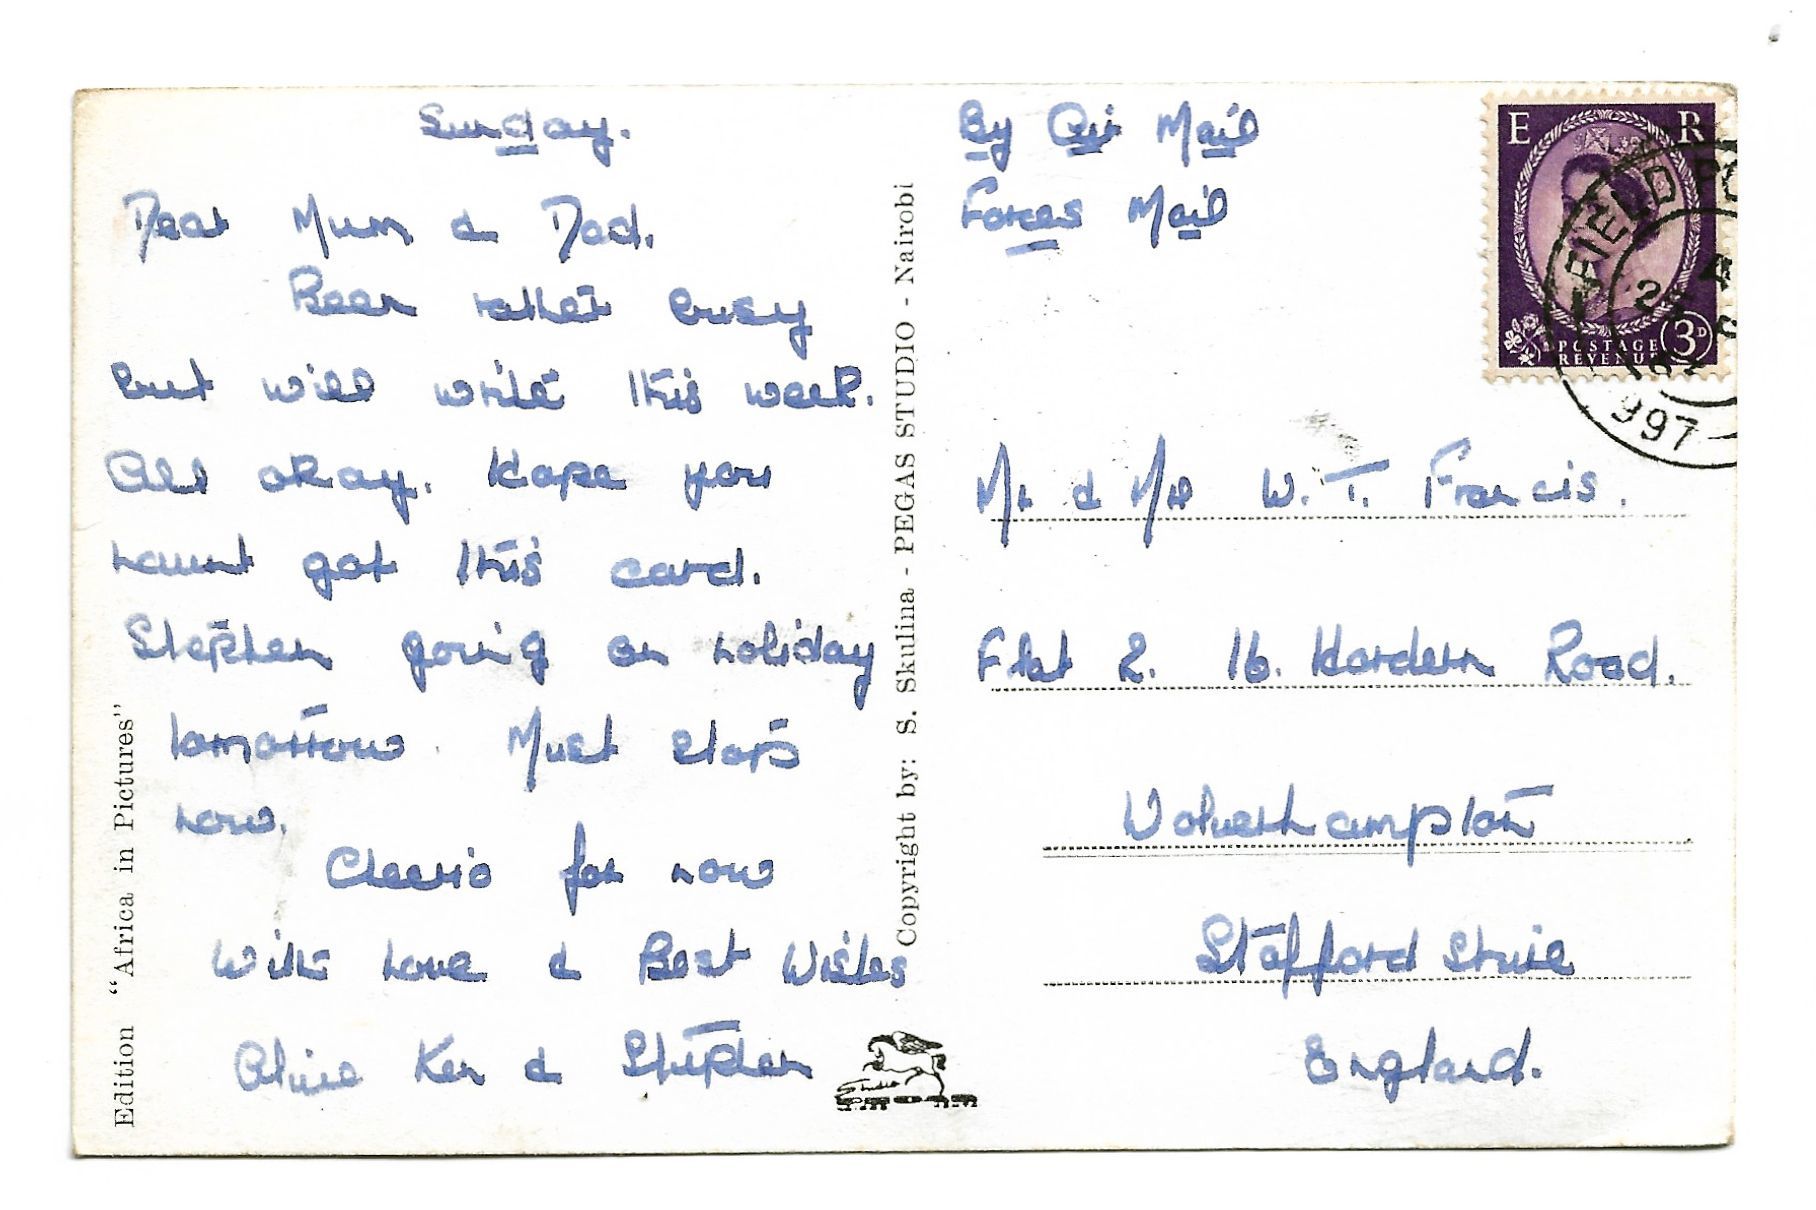 Sunday.
Dear Mum & Dad.
Been rather busy
but will write this week.
All okay. Hope you
havent got this card.
Stephen going on holiday
tomorrow. Must stop
now.
Cheerio for now
With Love & Best Wishes
Olive Ken & Stephen
Edition "Africa in Pictures"
Copyright by: S. Skulina - PEGAS STUDIO - Nairobi
Studio
By Air Mail
Forces Mail
E R
POSTAGE
REVENUE
3D
FIELD PO
997
Mr & Mrs W. T. Francis.
Flat 2. 16. Hordern Road.
Wolverhampton
Staffordshire
England.